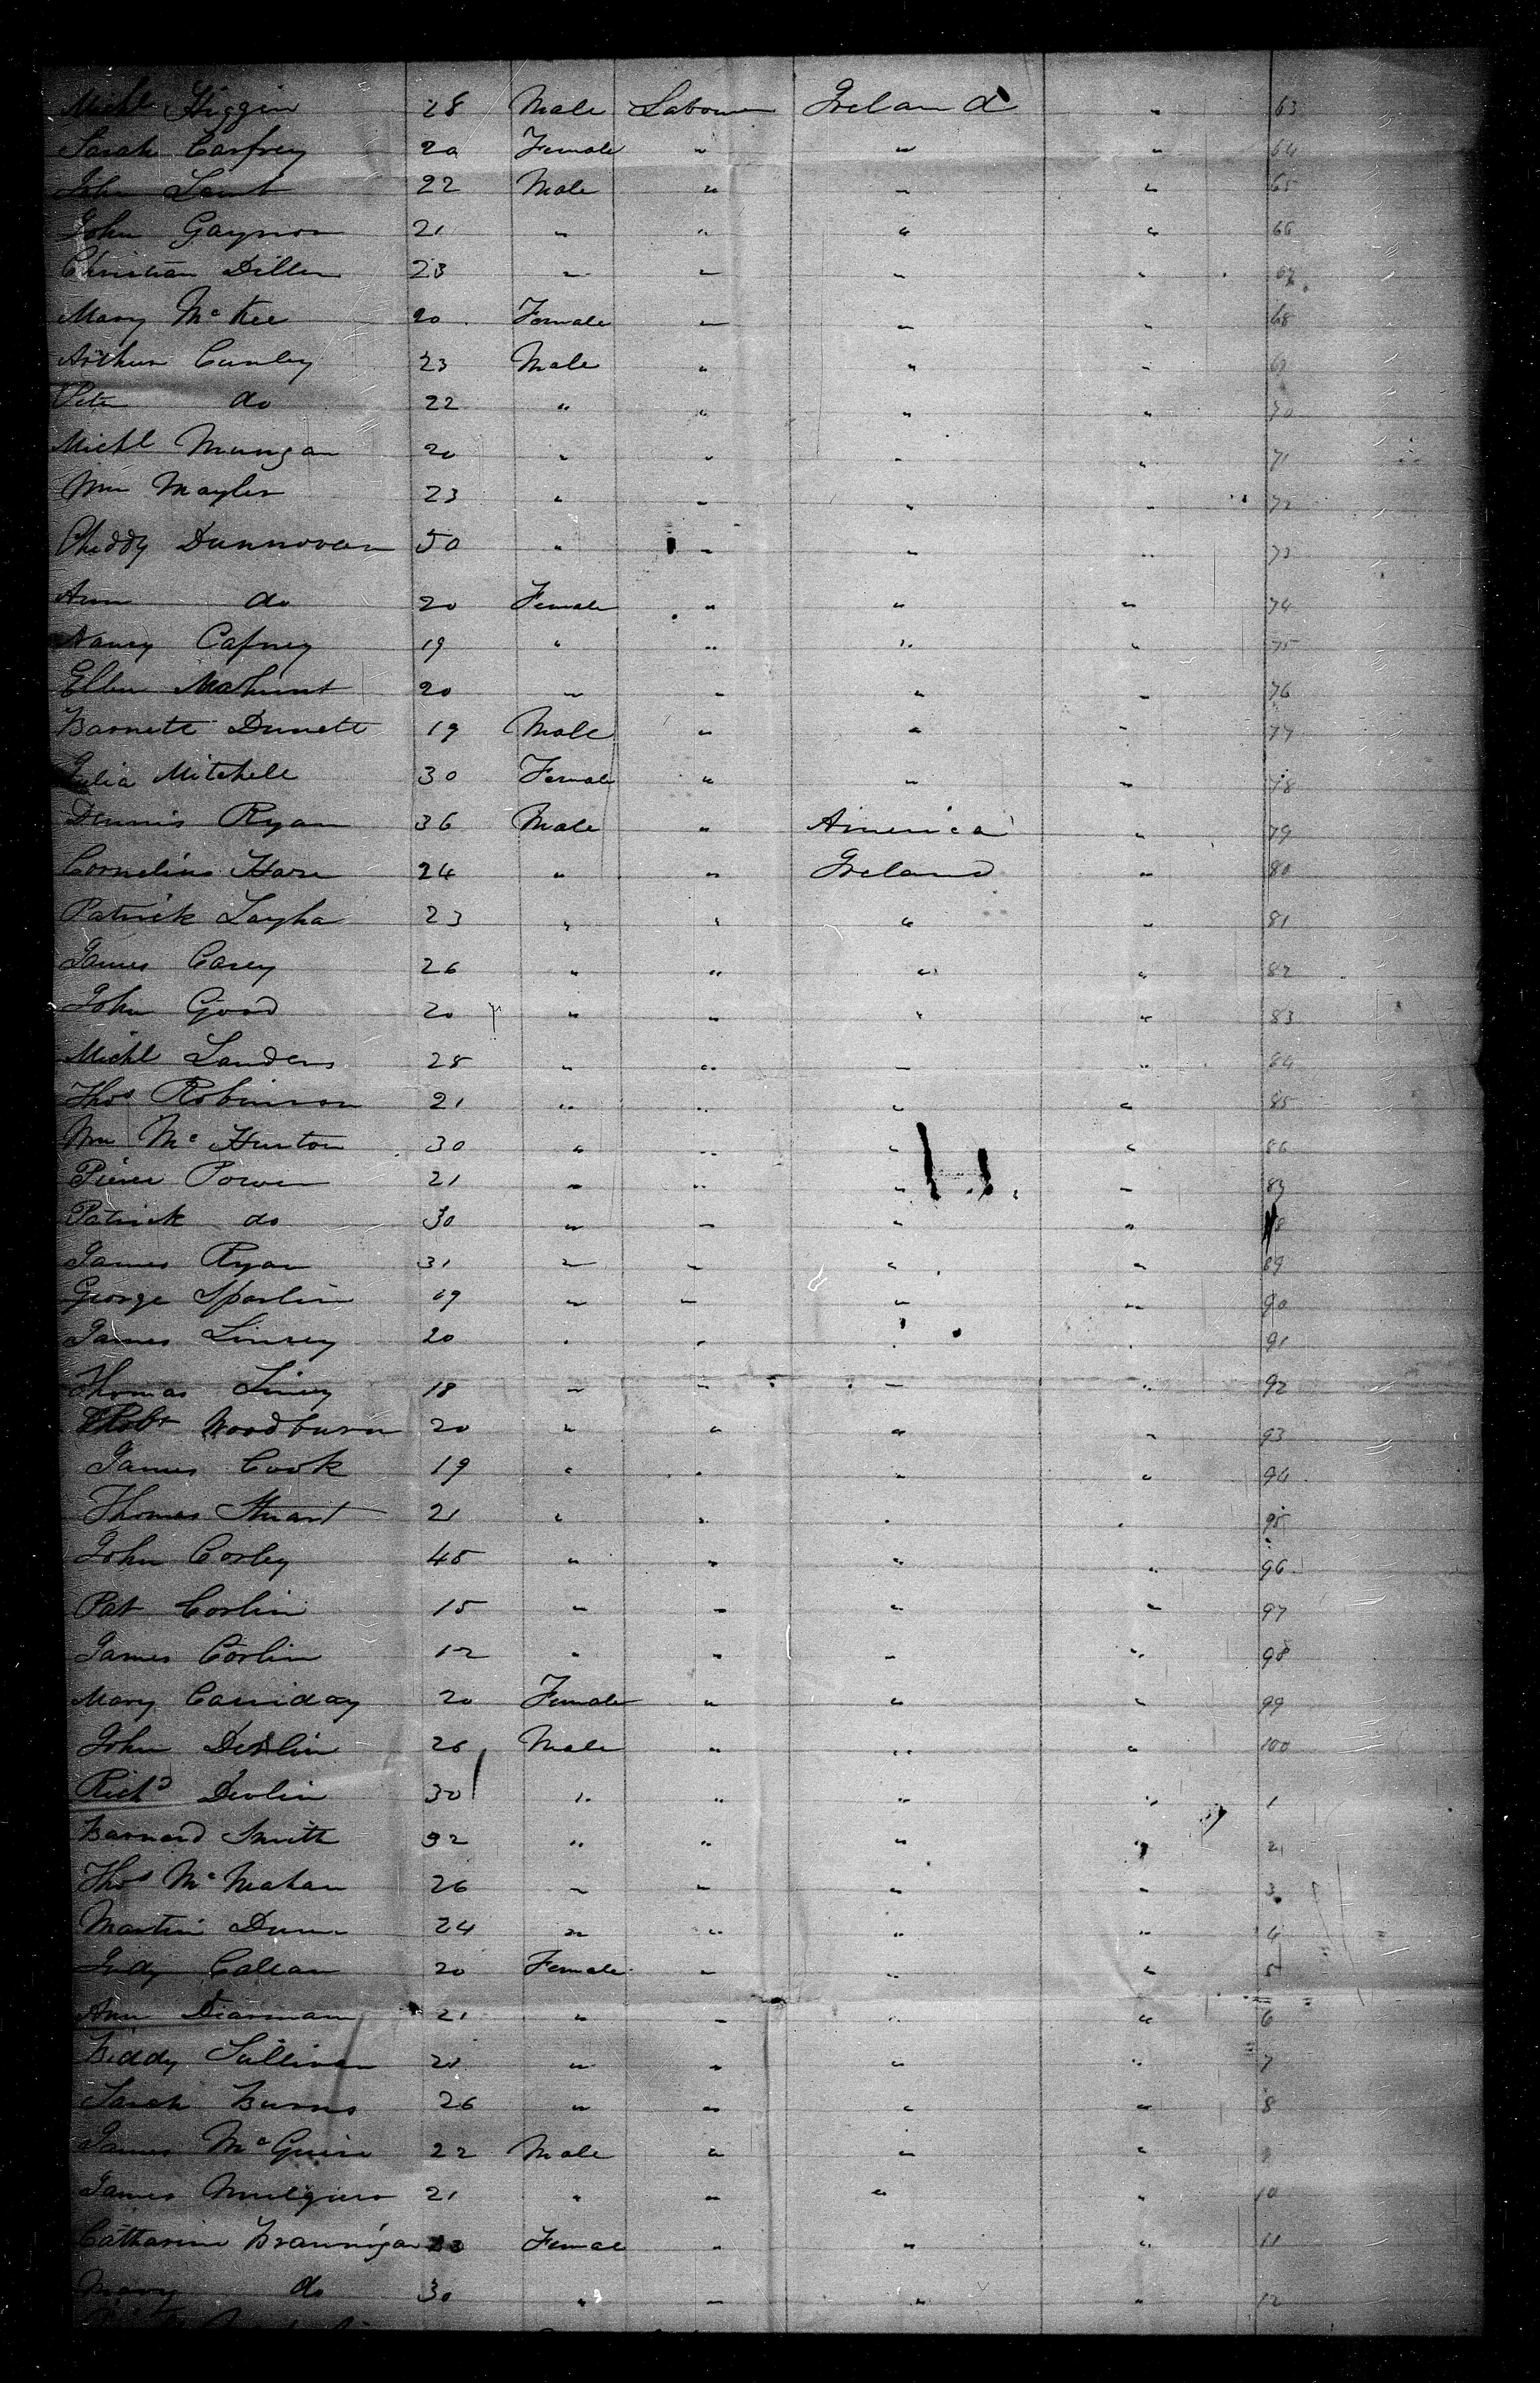 Michl Higgin 28 Male Labour Ireland " 63
Sarah Carfrey 20 Female " " " 64
John Lamb 22 Male " " " 65
John Gaynor 21 " " " " 66
Christian Dillon 23 " " " " 67
Mary McKee 20 Female " " " 68
Arthur Cunley 23 Male " " " 69
Peter do 22 " " " " 70
Michl Mungan 20 " " " " 71
Wm Mayler 23 " " " " 72
Dunnovan 50 " " " " 73
Ann do 20 Female " " " 74
Nancy Cafney 19 " " " " 75
Ellen 20 " " " " 76
Barnett Dunett 19 Male " " " 77
Julia Mitchell 30 Female " " " 78
Dennis Ryan 36 Male " America " 79
Cornelius Hare 24 " " Ireland " 80
Patrick Layha 23 " " " " 81
James Casey 26 " " " " 82
John Good 20 " " " " 83
Michl Landers 28 " " " " 84
Thos Robinson 21 " " " " 85
Wm Mc Hurton 30 " " " " 86
Pierce Power 21 " " " " 87
Patrick do 30 " " " " 88
James Ryan 31 " " " " 89
George Sparlin 19 " " " " 90
James Linsey 20 " " " " 91
Thomas Linsey 18 " " " " 92
Robt Woodburn 20 " " " " 93
James Cook 19 " " " " 94
Thomas Stuart 21 " " " " 95
John Corley 45 " " " " 96
Pat Corlin 15 " " " " 97
James Corlin 12 " " " " 98
Mary Cassiday 20 Female " " " 99
John Devlin 26 Male " " " 100
Richd Devlin 30 " " " " 1
Barnard Smith 32 " " " " 2
Thos McMahan 26 " " " " 3
Martin Dunn 24 " " " " 4
Judy Callan 20 Female " " " 5
Ann Dearman 21 " " " " 6
Biddy Sullivan 21 " " " " 7
Sarah Burns 26 " " " " 8
James McGuire 22 Male " " " 9
James 21 " " " " 10
Catharine Brannigan Female " " " 11
Mary do 30 " " " " 12